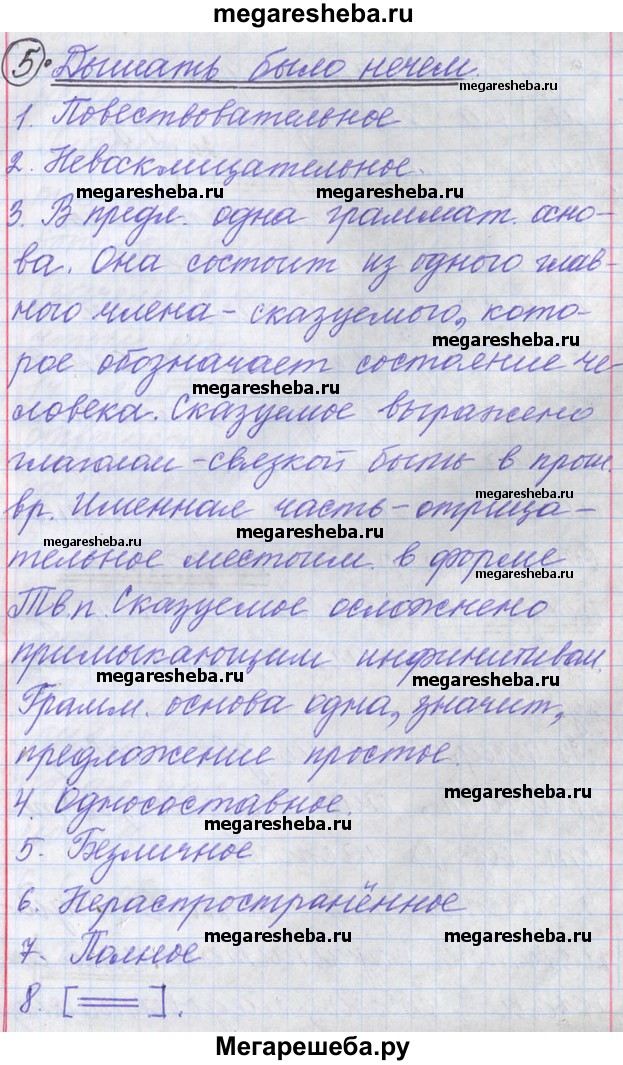 megaresheba.ru
5. Дышать было нечем.
megaresheba.ru
1. Повествовательное
2. Невосклицательное.
megaresheba.ru megaresheba.ru
3. В предл. одна граммат. осно-
ва. Она состоит из одного глав-
ного члена - сказуемого, кото-
megaresheba.ru
рое обозначает состояние че-
megaresheba.ru
ловека. Сказуемое выражено
глаголом-связкой быть в прош.
megaresheba.ru
вр. Именная часть - отрица-
megaresheba.ru megaresheba.ru
тельное местоим. в форме
megaresheba.ru
Тв.п. Сказуемое осложнено
примыкающим инфинитивом.
megaresheba.ru megaresheba.ru
Грамм. основа одна, значит,
предложение простое.
megaresheba.ru
4. Односоставное
megaresheba.ru
5. Безличное
6. Нераспространённое
megaresheba.ru megaresheba.ru
7. Полное
8. [ ].
Мегарешеба.ру